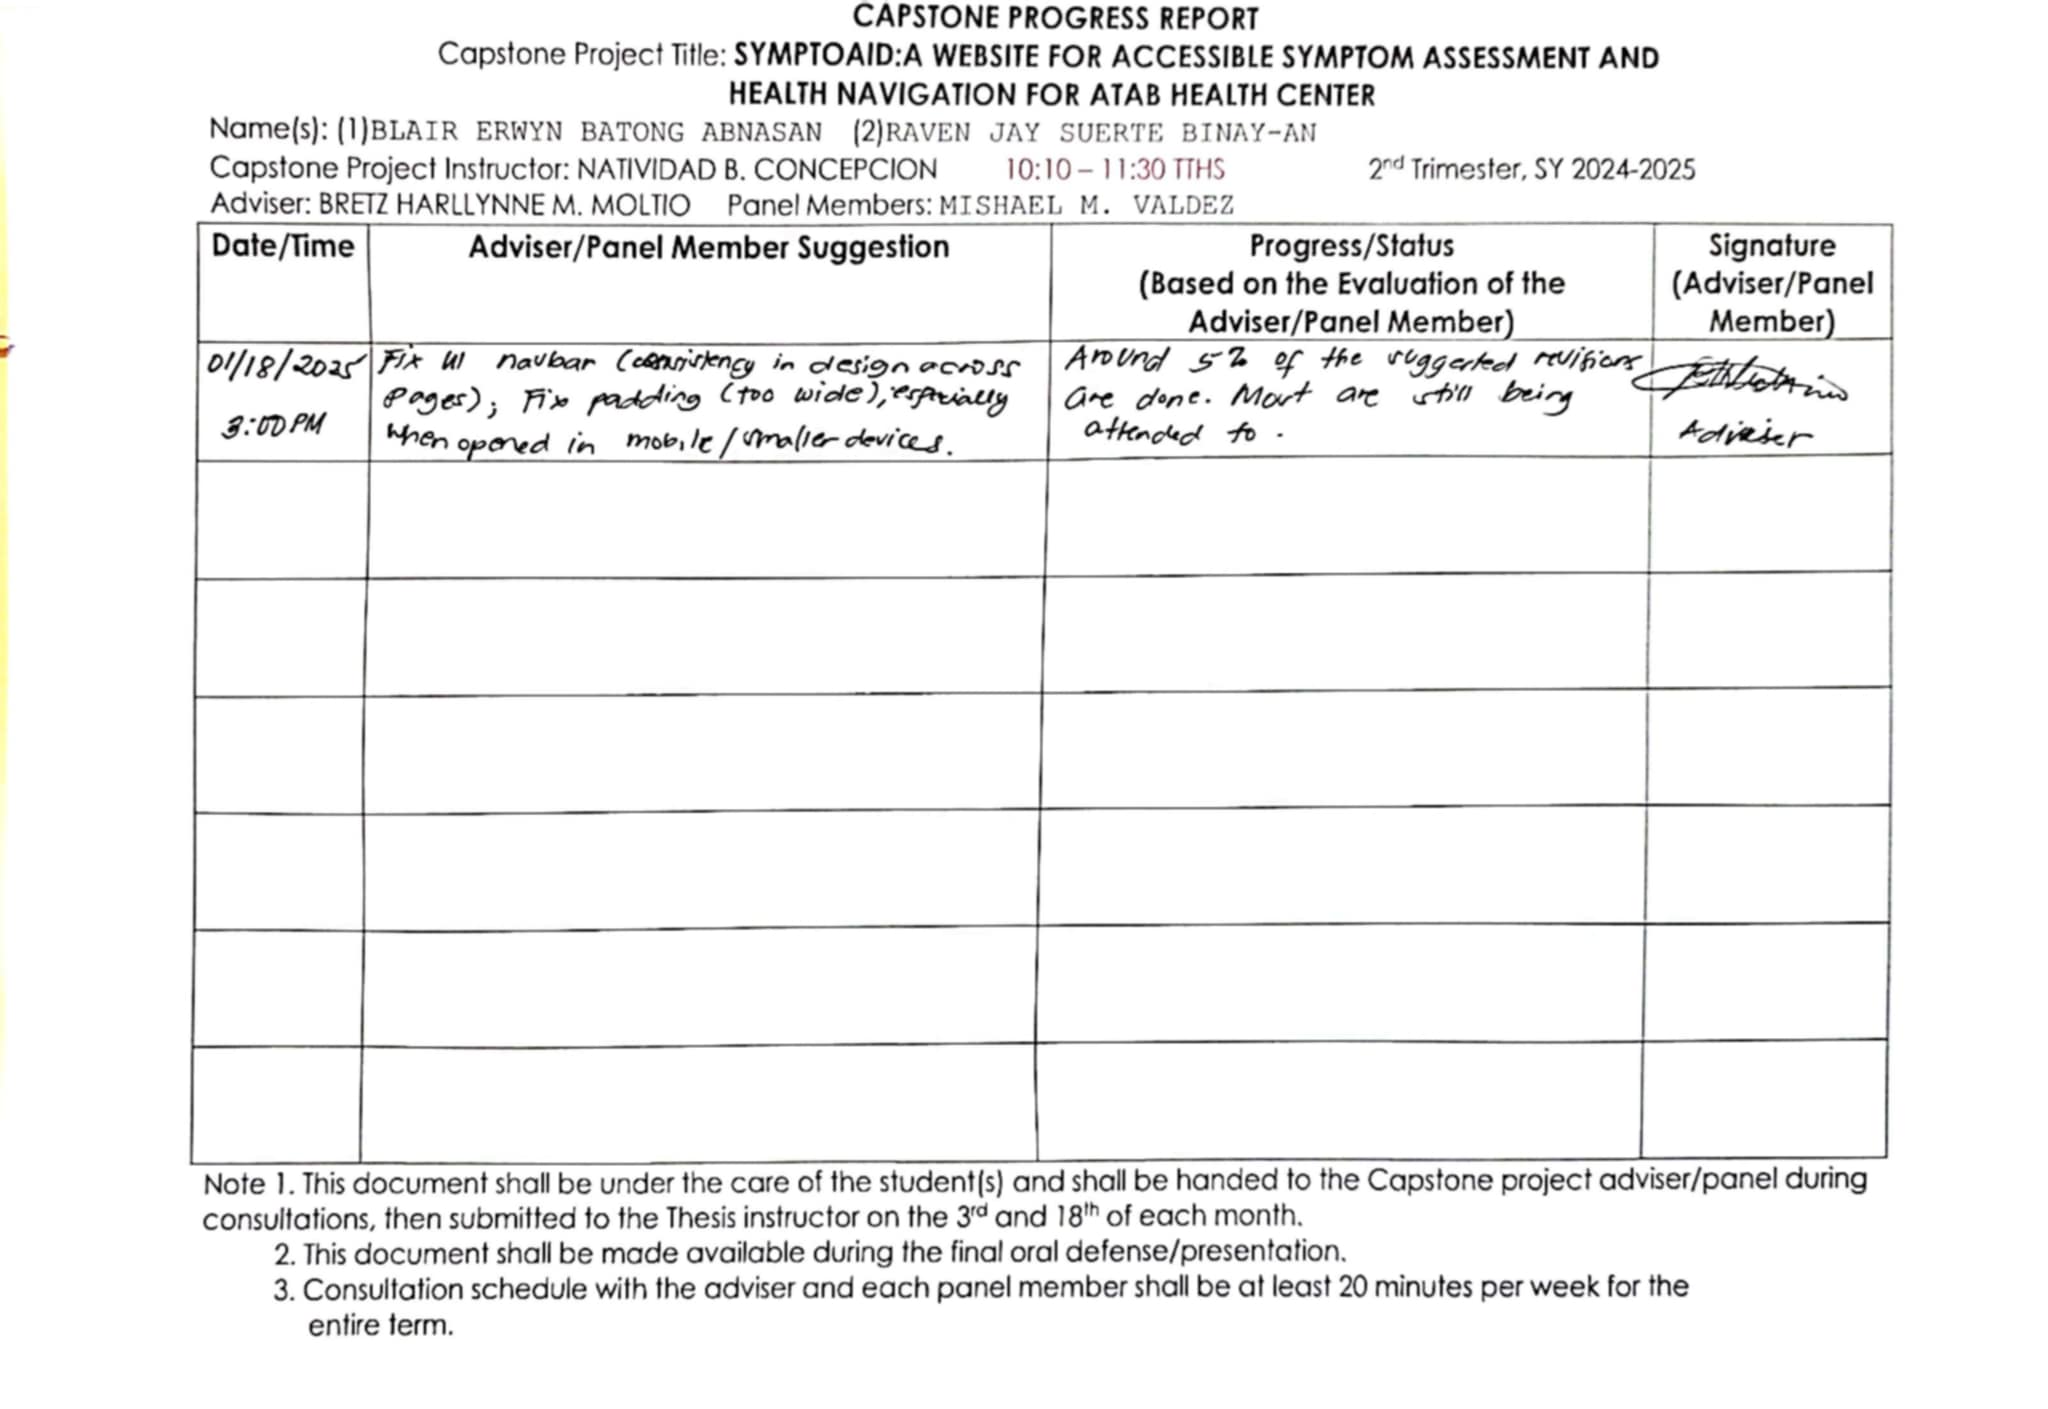 CAPSTONE PROGRESS REPORT
Capstone Project Title: SYMPTOAID:A WEBSITE FOR ACCESSIBLE SYMPTOM ASSESSMENT AND
HEALTH NAVIGATION FOR ATAB HEALTH CENTER
Name(s): (1)BLAIR ERWYN BATONG ABNASAN (2)RAVEN JAY SUERTE BINAY-AN
Capstone Project Instructor: NATIVIDAD B. CONCEPCION 10:10 – 11:30 TTHS 2nd Trimester, SY 2024-2025
Adviser: BRETZ HARLLYNNE M. MOLTIO Panel Members: MISHAEL M. VALDEZ
Date/Time
Adviser/Panel Member Suggestion
Progress/Status
(Based on the Evaluation of the
Adviser/Panel Member)
Signature
(Adviser/Panel
Member)
01/18/2025
3:00PM
Fix UI navbar (consistency in design across
pages); Fix padding (too wide), especially
when opened in mobile/smaller devices.
Around 5% of the suggested revisions
are done. Most are still being
attended to.
Adviser
Note 1. This document shall be under the care of the student(s) and shall be handed to the Capstone project adviser/panel during
consultations, then submitted to the Thesis instructor on the 3rd and 18th of each month.
2. This document shall be made available during the final oral defense/presentation.
3. Consultation schedule with the adviser and each panel member shall be at least 20 minutes per week for the
entire term.